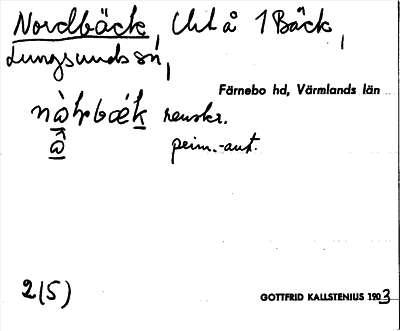 Nordbäck, Utt å 1 Bäck,
Lungsunds sn,
Färnebo hd, Värmlands län
renskr.
prim.-ant.
2(5)
GOTTFRID KALLSTENIUS 1903